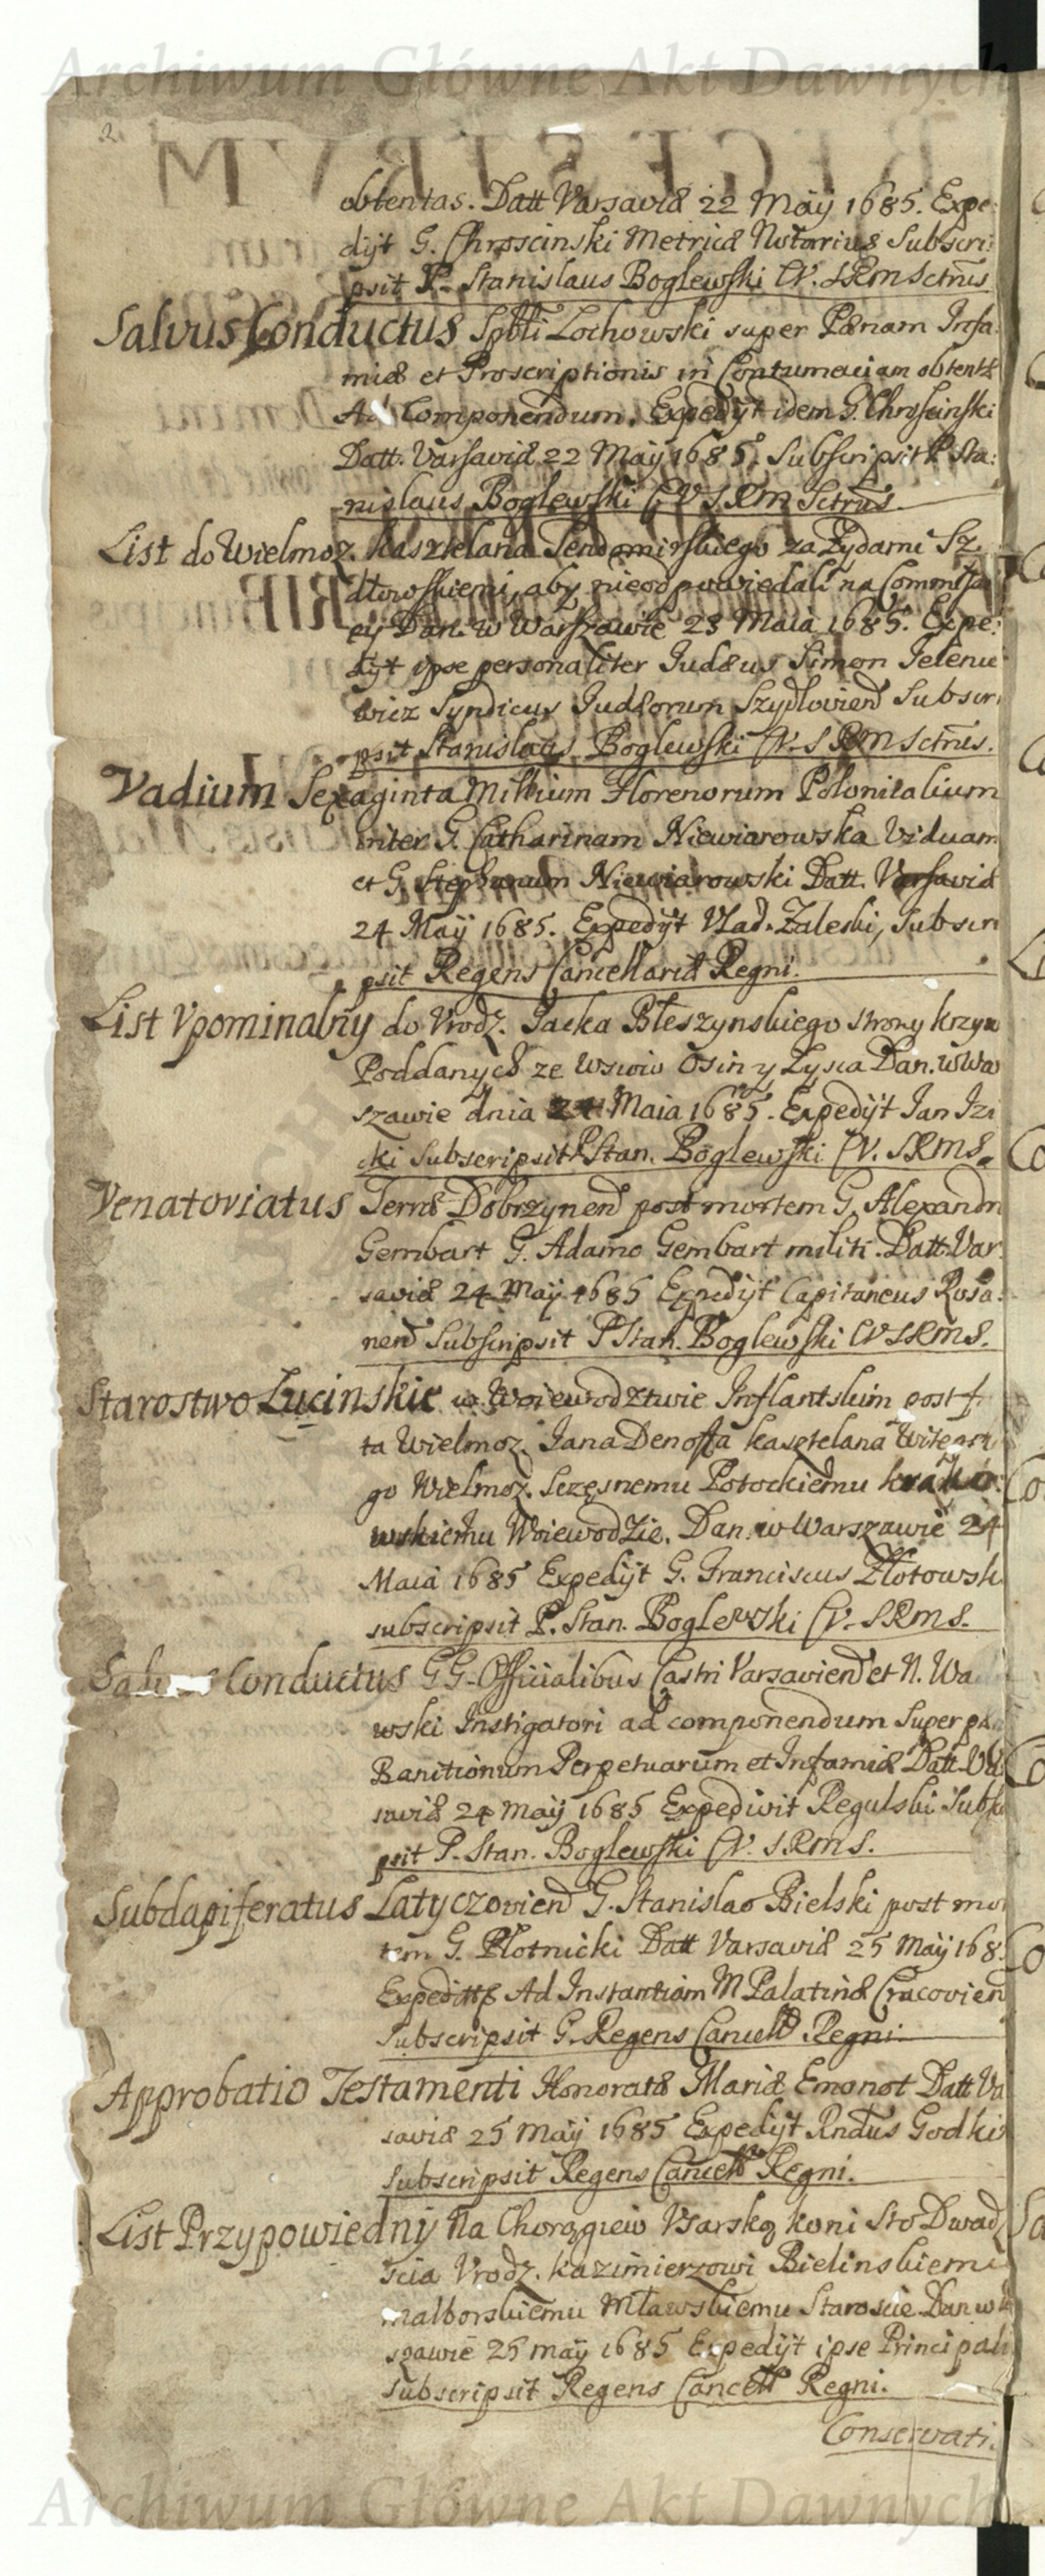 Archiwum Główne Akt Dawnych
2
obtentas. Datt Varsaviæ 22 Maÿ 1685. Expe:
dijt G. Chroscinski Metricæ Notarius Subscri:
psit P. Stanislaus Boglewski CV. SRM Sctrius
Salvus Conductus Spbli Lochowski super Pænam Infa:
miæ et Proscriptionis in Contumaciam obtentæ
Ad Componendum. Expedijt idem G. Chroscinski
Datt. Varsaviæ 22 Maÿ 1685. Subscripsit P Sta:
nislaus Boglewski CV SRM Sctrius.
List do Wielmoz. Kasztelana Sendomirskiego za Zydami Sz
dłowskiemi, aby nieodpowiedali na Commissa
cÿ Dan. w Warszawie 23 Maia 1685. Expe:
dijt ipse personaliter Judæus Simon Jelenie
wicz Syndicus Judæorum Szydloviend Subscri
psit Stanislaus Boglewski CV. SRM Sctrius.
Vadium Sexaginta Millium Florenorum Polonicalium
inter G. Catharinam Niewiarowska Viduam
et G. Stephanum Niewiarowski Datt. Varsaviæ
24 Maÿ 1685. Expedijt Vlad. Zaleski, Subscri
psit Regens Cancellariæ Regni.
List Vpominalny do Vrodz. Jacka Błeszynskiego strony krzyw
Poddanych ze wsiow Osin y Łysca Dan. w Wa
szawie dnia 24 Maia 1685. Expedijt Jan Izi
cki Subscripsit P Stan. Boglewski CV. SRMS.
Venatoriatus Terræ Dobrzynend post mortem G. Alexandri
Gembart G. Adamo Gembart militi. Datt. Var:
saviæ 24 Maÿ 1685 Expedijt Capitaneus Rosa:
nend Subscripsit P Stan. Boglewski CV SRMS.
Starostwo Lucinskie w Woiewodztwie Inflantskim post f
ta Wielmoz. Jana Denoffa Kasztelana
go Wielmoz. Sczęsnemu Potockiemu krako:
wskiemu Woiewodzie. Dan. w Warszawie 24
Maia 1685 Expedijt G. Franciscus Złotowsk
subscripsit P. Stan. Boglewski CV. SRMS.
Conductus GG. Officialibus Castri Varsaviend et N. Wa
wski Instigatori ad componendum Super
Banitionum Perpetuarum et Infamiæ Datt Va
saviæ 24 Maÿ 1685 Expedivit Regulski Subscri
psit P. Stan. Boglewski CV. SRMS.
Subdapiferatus Latyczoviend G. Stanislao Bielski post mor
tem G. Płotnicki Datt Varsaviæ 25 Maÿ 168
Expedit Ad Instantiam M Palatinæ Cracoviend
Subscripsit G. Regens Cancell Regni.
Approbatio Testamenti Honoratæ Mariæ Emonot Datt Va
saviæ 25 Maÿ 1685 Expedijt Rndus Godki
Subscripsit Regens Cancell Regni.
List Przypowiedny Na Chorągiew Vsarską koni Sto Dwadz
scia Vrodz. Kazimierzowi Bielinskiemu
malborskiemu Mławskiemu Staroscie. Dan w
szawie 25 maÿ 1685 Expedijt ipse Principali
Subscripsit Regens Cancell Regni.
Conservati.
Archiwum Główne Akt Dawnych